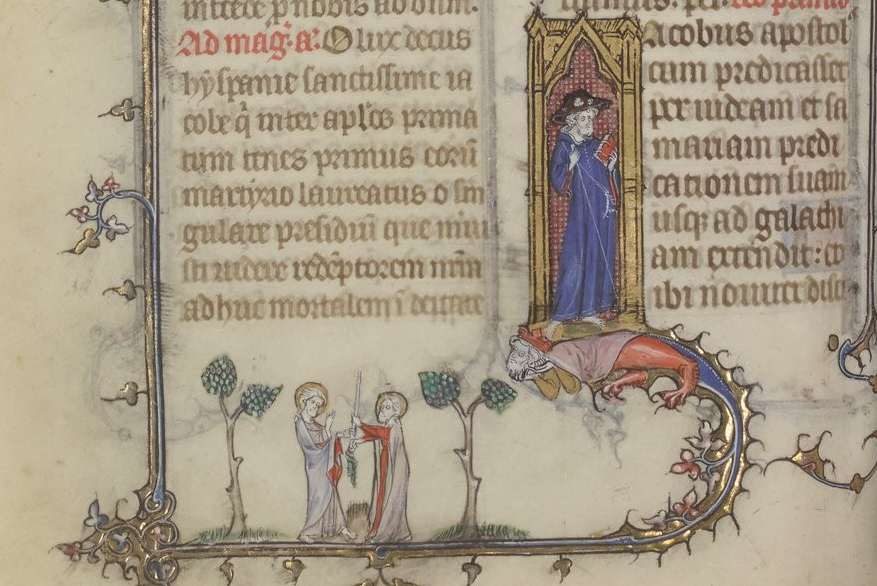 intcede p nobis ad dnm.
Ad mag. a. O lux decus
hyspanie sanctissime ia
cobe q̃ inter apl'os prima
tum tenes primus eorũ
martyrio laureatus o sin
gulare presidiũ que miu
sti uidere redẽptorem nr̃m
adhuc mortalem ĩ deitate
Iacobus apostol'
cum predicasset
per iudeam et sa
mariam predi
cationem suam
usq; ad galathi
am extendit: et
ibi nouiter disci